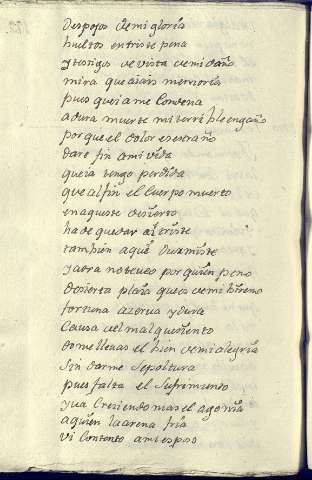 Despojos de mi gloria
bueltos en triste pena
y testigos de vista de mi daño
mira que aiais memoria
pues que ia me condena
a dura muerte mi terrible engaño
porque el dolor es estraño
dare fin a mi vida
que ia tengo perdida
que al fin el cuerpo muerto
en aqueste desierto
ha de quedar al triste
tambien aqui
y aora no te veo por quien peno
desierta plaia que a de mi
fortuna azerva y dura
causa del mal que siento
do me llevas el bien de mi alegria
sin darme sepoltura
pues falta el sufrimiento
y va creziendo mas el agonia
a quien la arena fria
vi contento a mi esposo